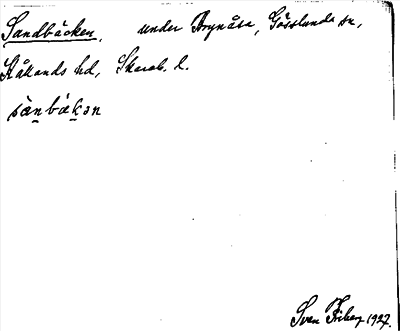 Sandbäcken, under Brynåsa, Gösslunda sn,
Kållands hd, Skarab. l.
sànbäkən
Sven Friberg 1927.